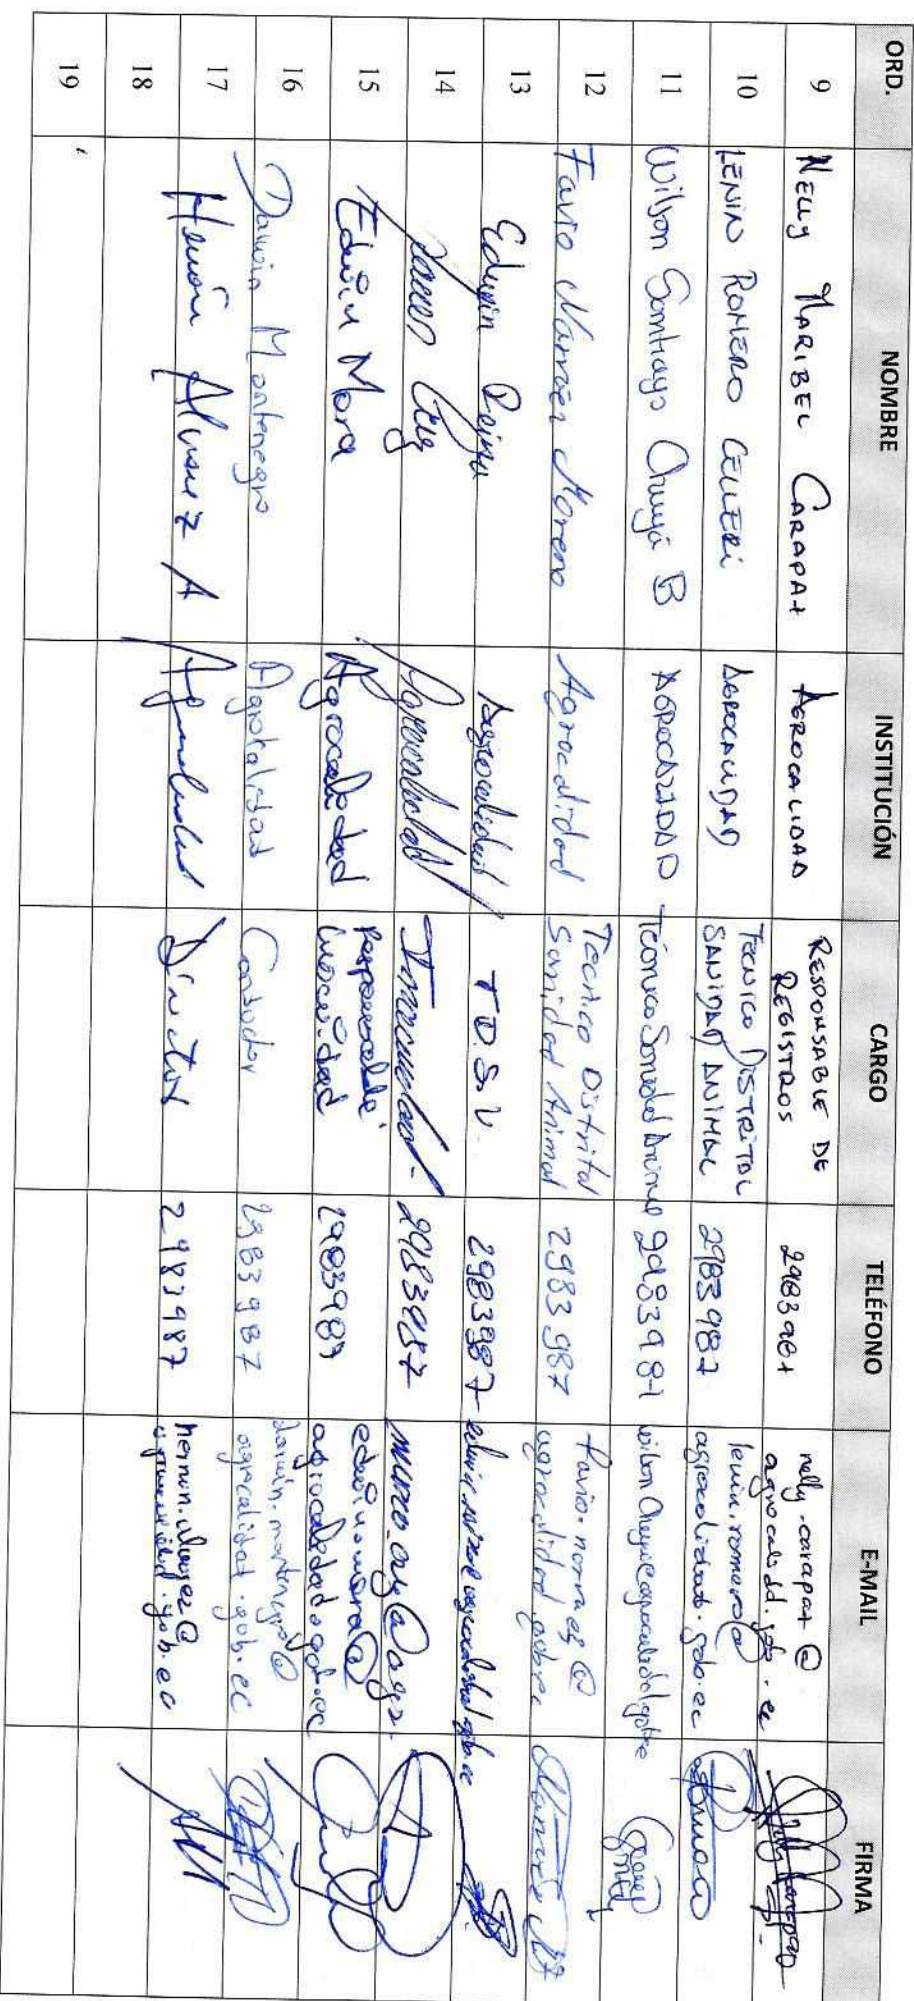 ORD. NOMBRE INSTITUCIÓN CARGO TELÉFONO E-MAIL FIRMA
9 NELLY MARIBEL CARAPAZ AGROCALIDAD RESPONSABLE DE REGISTROS nelly.carapaz@
10 LENIN ROMERO CELLERI AGROCALIDAD TECNICO DISTRITAL SANIDAD ANIMAL 2983987 lenin.romero@ agrocalidad.gob.ec
11 Wilson Santiago B AGROCALIDAD Técnico Sanidad Animal
12 Favio Narváez Moreno Agrocalidad Tecnico Distrital Sanidad Animal 2983987 favio.narvaez@ agrocalidad.gob.ec
13 Edwin Agrocalidad T.D.S.V. 2983987
14 Agrocalidad 2983987
15 Edwin Mora Agrocalidad Responsable Inocuidad 2983987 edwin.mora@ agrocalidad.gob.ec
16 Darwin Montenegro Agrocalidad Conductor 2983987 darwin.montenegro@ agrocalidad.gob.ec
17 Hernán Alvarez A Agrocalidad Director 2983987 hernan.alvarez@ agrocalidad.gob.ec
18
19